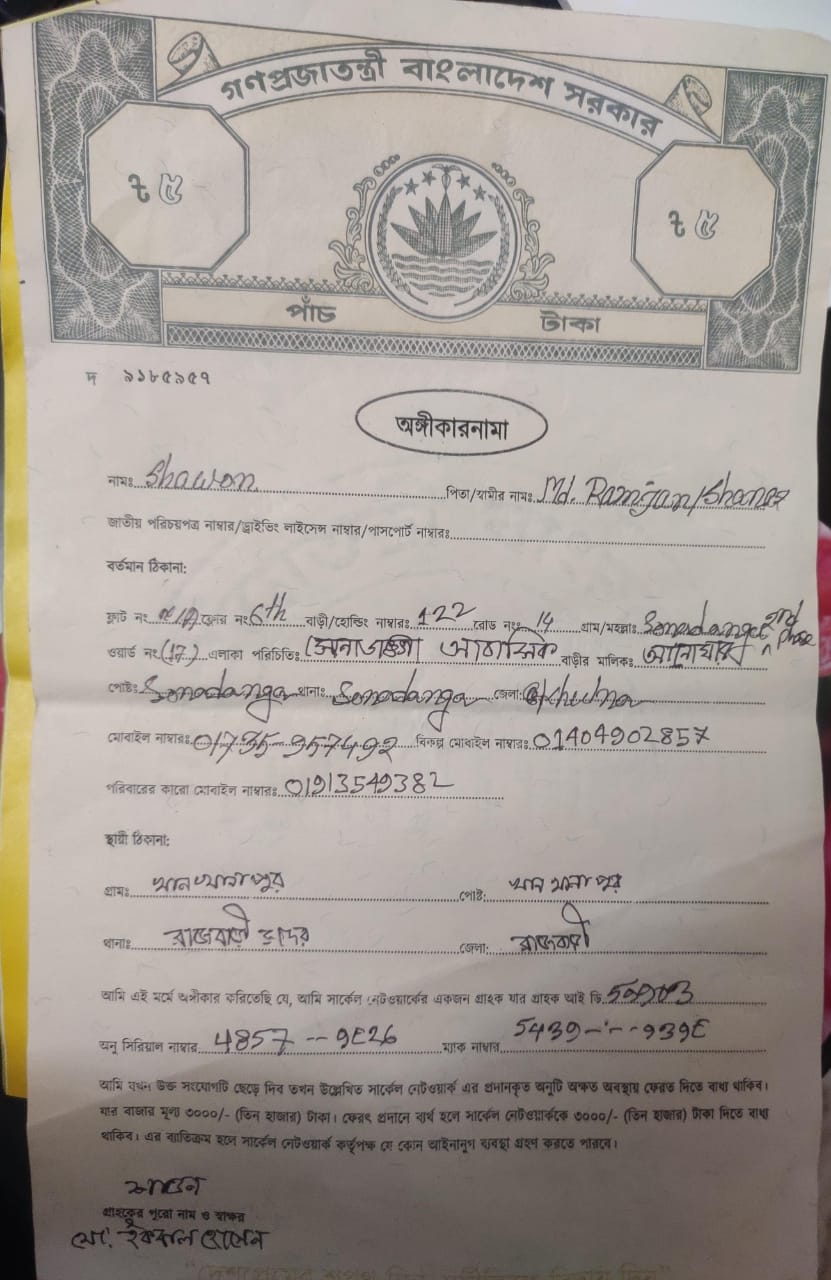 গণপ্রজাতন্ত্রী বাংলাদেশ সরকার
৳ ৫ ৳ ৫
পাঁচ টাকা
দ ৯১৮৫৯৫৭
অঙ্গীকারনামা
নামঃ Shawon পিতা/স্বামীর নামঃ Md. Ramjan/
জাতীয় পরিচয়পত্র নাম্বার/ড্রাইভিং লাইসেন্স নাম্বার/পাসপোর্ট নাম্বারঃ
বর্তমান ঠিকানা:
ফ্লাট নং ফ্লোর নংঃ 6th বাড়ী/হোল্ডিং নাম্বারঃ 122 রোড নংঃ 14 গ্রাম/মহল্লাঃ Sonadanga 2nd phase
ওয়ার্ড নংঃ (17) এলাকা পরিচিতিঃ সোনাডাঙ্গা আবাসিক বাড়ীর মালিকঃ
পোষ্টঃ Sonadanga থানাঃ Sonadanga জেলা: Khulna
মোবাইল নাম্বারঃ 01735-957492 বিকল্প মোবাইল নাম্বারঃ 01404902857
পরিবারের কারো মোবাইল নাম্বারঃ 01913549382
স্থায়ী ঠিকানা:
গ্রামঃ খানখানাপুর পোষ্ট: খানখানাপুর
থানাঃ রাজবাড়ী সদর জেলা: রাজবাড়ী
আমি এই মর্মে অঙ্গীকার করিতেছি যে, আমি সার্কেল নেটওয়ার্কের একজন গ্রাহক যার গ্রাহক আই ডি
অনু সিরিয়াল নাম্বার 4857--9E26 ম্যাক নাম্বার 5439----939E
আমি যখন উক্ত সংযোগটি ছেড়ে দিব তখন উল্লেখিত সার্কেল নেটওয়ার্ক এর প্রদানকৃত অনুটি অক্ষত অবস্থায় ফেরত দিতে বাধ্য থাকিব।
যার বাজার মূল্য ৩০০০/- (তিন হাজার) টাকা। ফেরৎ প্রদানে ব্যর্থ হলে সার্কেল নেটওয়ার্ককে ৩০০০/- (তিন হাজার) টাকা দিতে বাধ্য
থাকিব। এর ব্যতিক্রম হলে সার্কেল নেটওয়ার্ক কর্তৃপক্ষ যে কোন আইনানুগ ব্যবস্থা গ্রহণ করতে পারবে।
শাওন
গ্রাহকের পুরো নাম ও স্বাক্ষর
মো: ইকবাল হোসেন